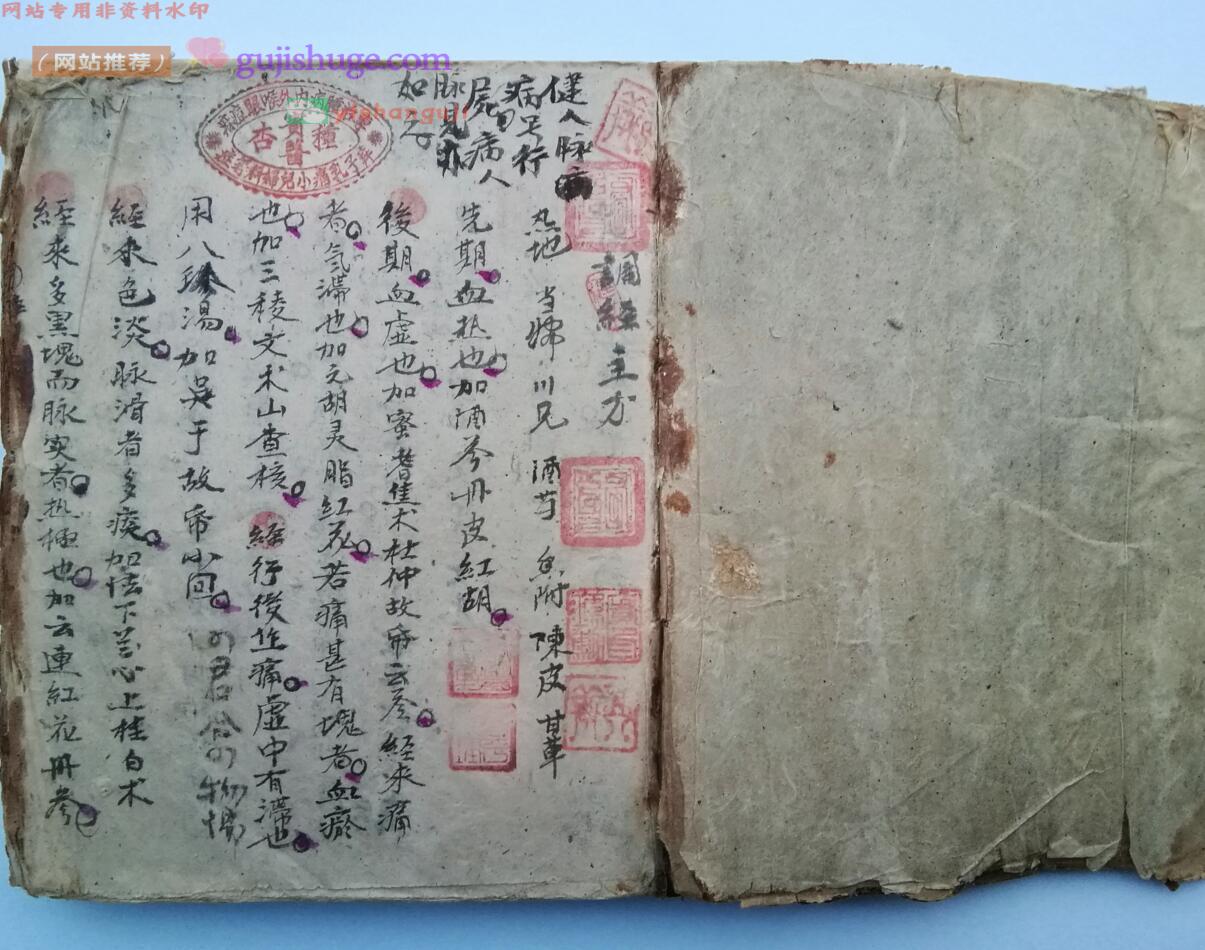 网站专用非资料水印
（网站推荐）
gujishuge.com
yizhanguji
健人脉病
病号行
屍病人
脉見非
如
種
杏
醫
調經主方
熟地 当帰 川芎 酒芍 香附 陳皮 甘草
先期。血热也。加酒芩丹皮紅胡。
後期。血虚也。加蜜耆焦术杜仲故帋云苓。經来痛
者。气滞也。加元胡灵脂紅花。若痛甚有塊者。血瘀
也。加三稜文术山查核。經行後作痛。虚中有滞也。
用八珍湯。加吳于故帋小囬。四君合四物湯
經来色淡。脉滑者多痰。加法下芥心上桂白术
經来多黑塊而脉实者。热極也。加云連紅花丹参。